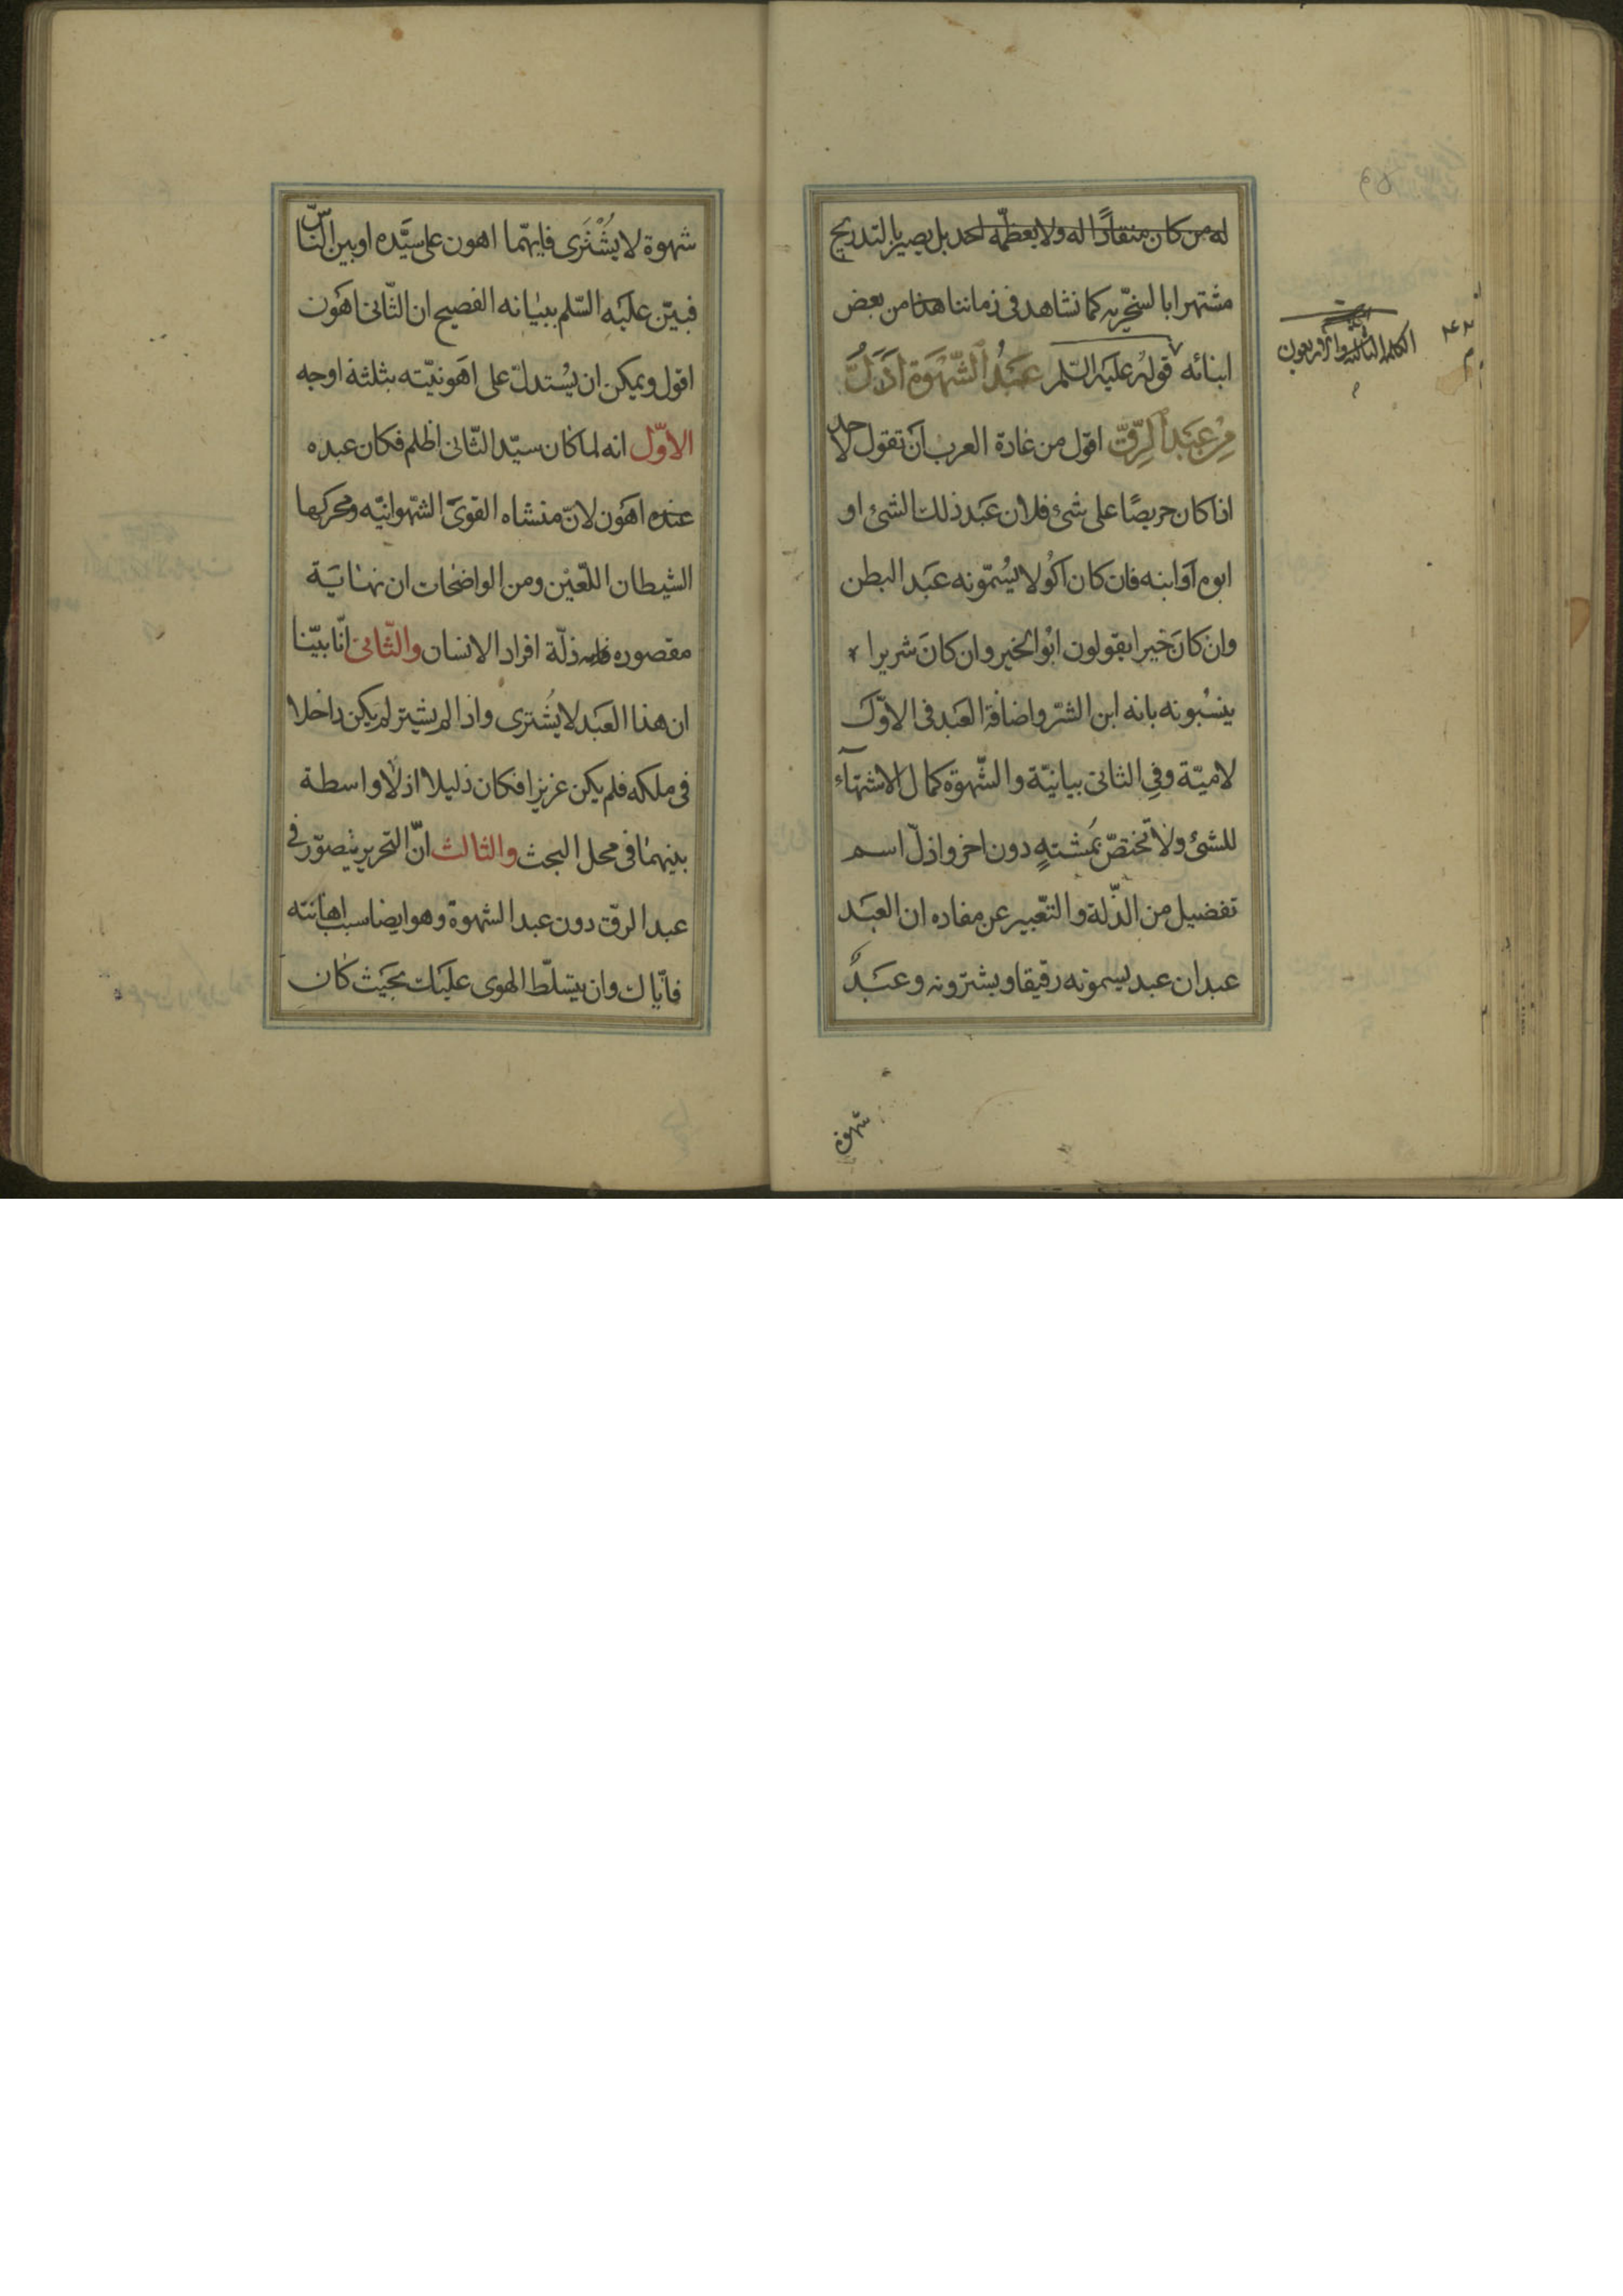 له من كان منقادا له ولا يعظّمه احد بل يصير بالتدريج
مشتهرا بالسخّريه كما نشاهد فى زماننا هذا من بعض
ابنائه قوله عليه السّلم عَبْدُ الشَّهْوَةِ اَذَلُّ
مِنْ عَبْدِ الرِّقِّ اقول من عادة العرب ان تقول لاحد
اذا كان حريصًا على شئ فلان عَبد ذلك الشئ او
ابوه اوابنه فان كان اكُولا يُسمّونه عَبَد البطن
وان كانَ خيرا يقولون ابُوالخير وان كانَ شريرا
ينسُبونه بانه ابن الشرّ واضافة العَبد فى الاوّل
لاميّة وفى الثانى بيانيّة والشّهوة كمال الاشتهآء
للشئ ولا تختصّ بمُشتهٍ دون اخر واذلّ اسم
تفضيل من الذّلة والتّعبير عن مفاده ان العبَد
عبدان عبد يسمونه رقيقا ويشترونه وعَبَدٌ
الكلمة الثالثة والاربعون
شهوة
شهوة لا يُشْتَرى فايهّما اهون على سيَّده اوبين النّاس
فبيّن عليَه السّلم ببيانه الفصيح ان الثّانى اهَون
اقول ويمكن ان يُستدلّ على اهَونيّته بثلثة اوجه
الاوّل انه لما كان سيّد الثّانى اظلم فكان عبده
عنده اهَون لانّ منشاه القوىَ الشّهوانيّه ومحركها
الشيطان اللّعيْن ومن الواضحات ان نهايَة
مقصوده ذلّة افراد الانسان والثّانى انّا بيّنا
ان هذا العَبَد لا يُشترى واذا لم يشتر لم يكن داخلا
فى ملكه فلم يكن عزيزا فكان ذليلا اذ لا واسطة
بينهما فى محل البحث والثالث انّ التحرير يتصوّر فى
عبد الرقّ دون عبد الشهوة وهو ايضا سبب اهانته
فايّاك وان يتسلّط الهوى عليَك بحَيث كان